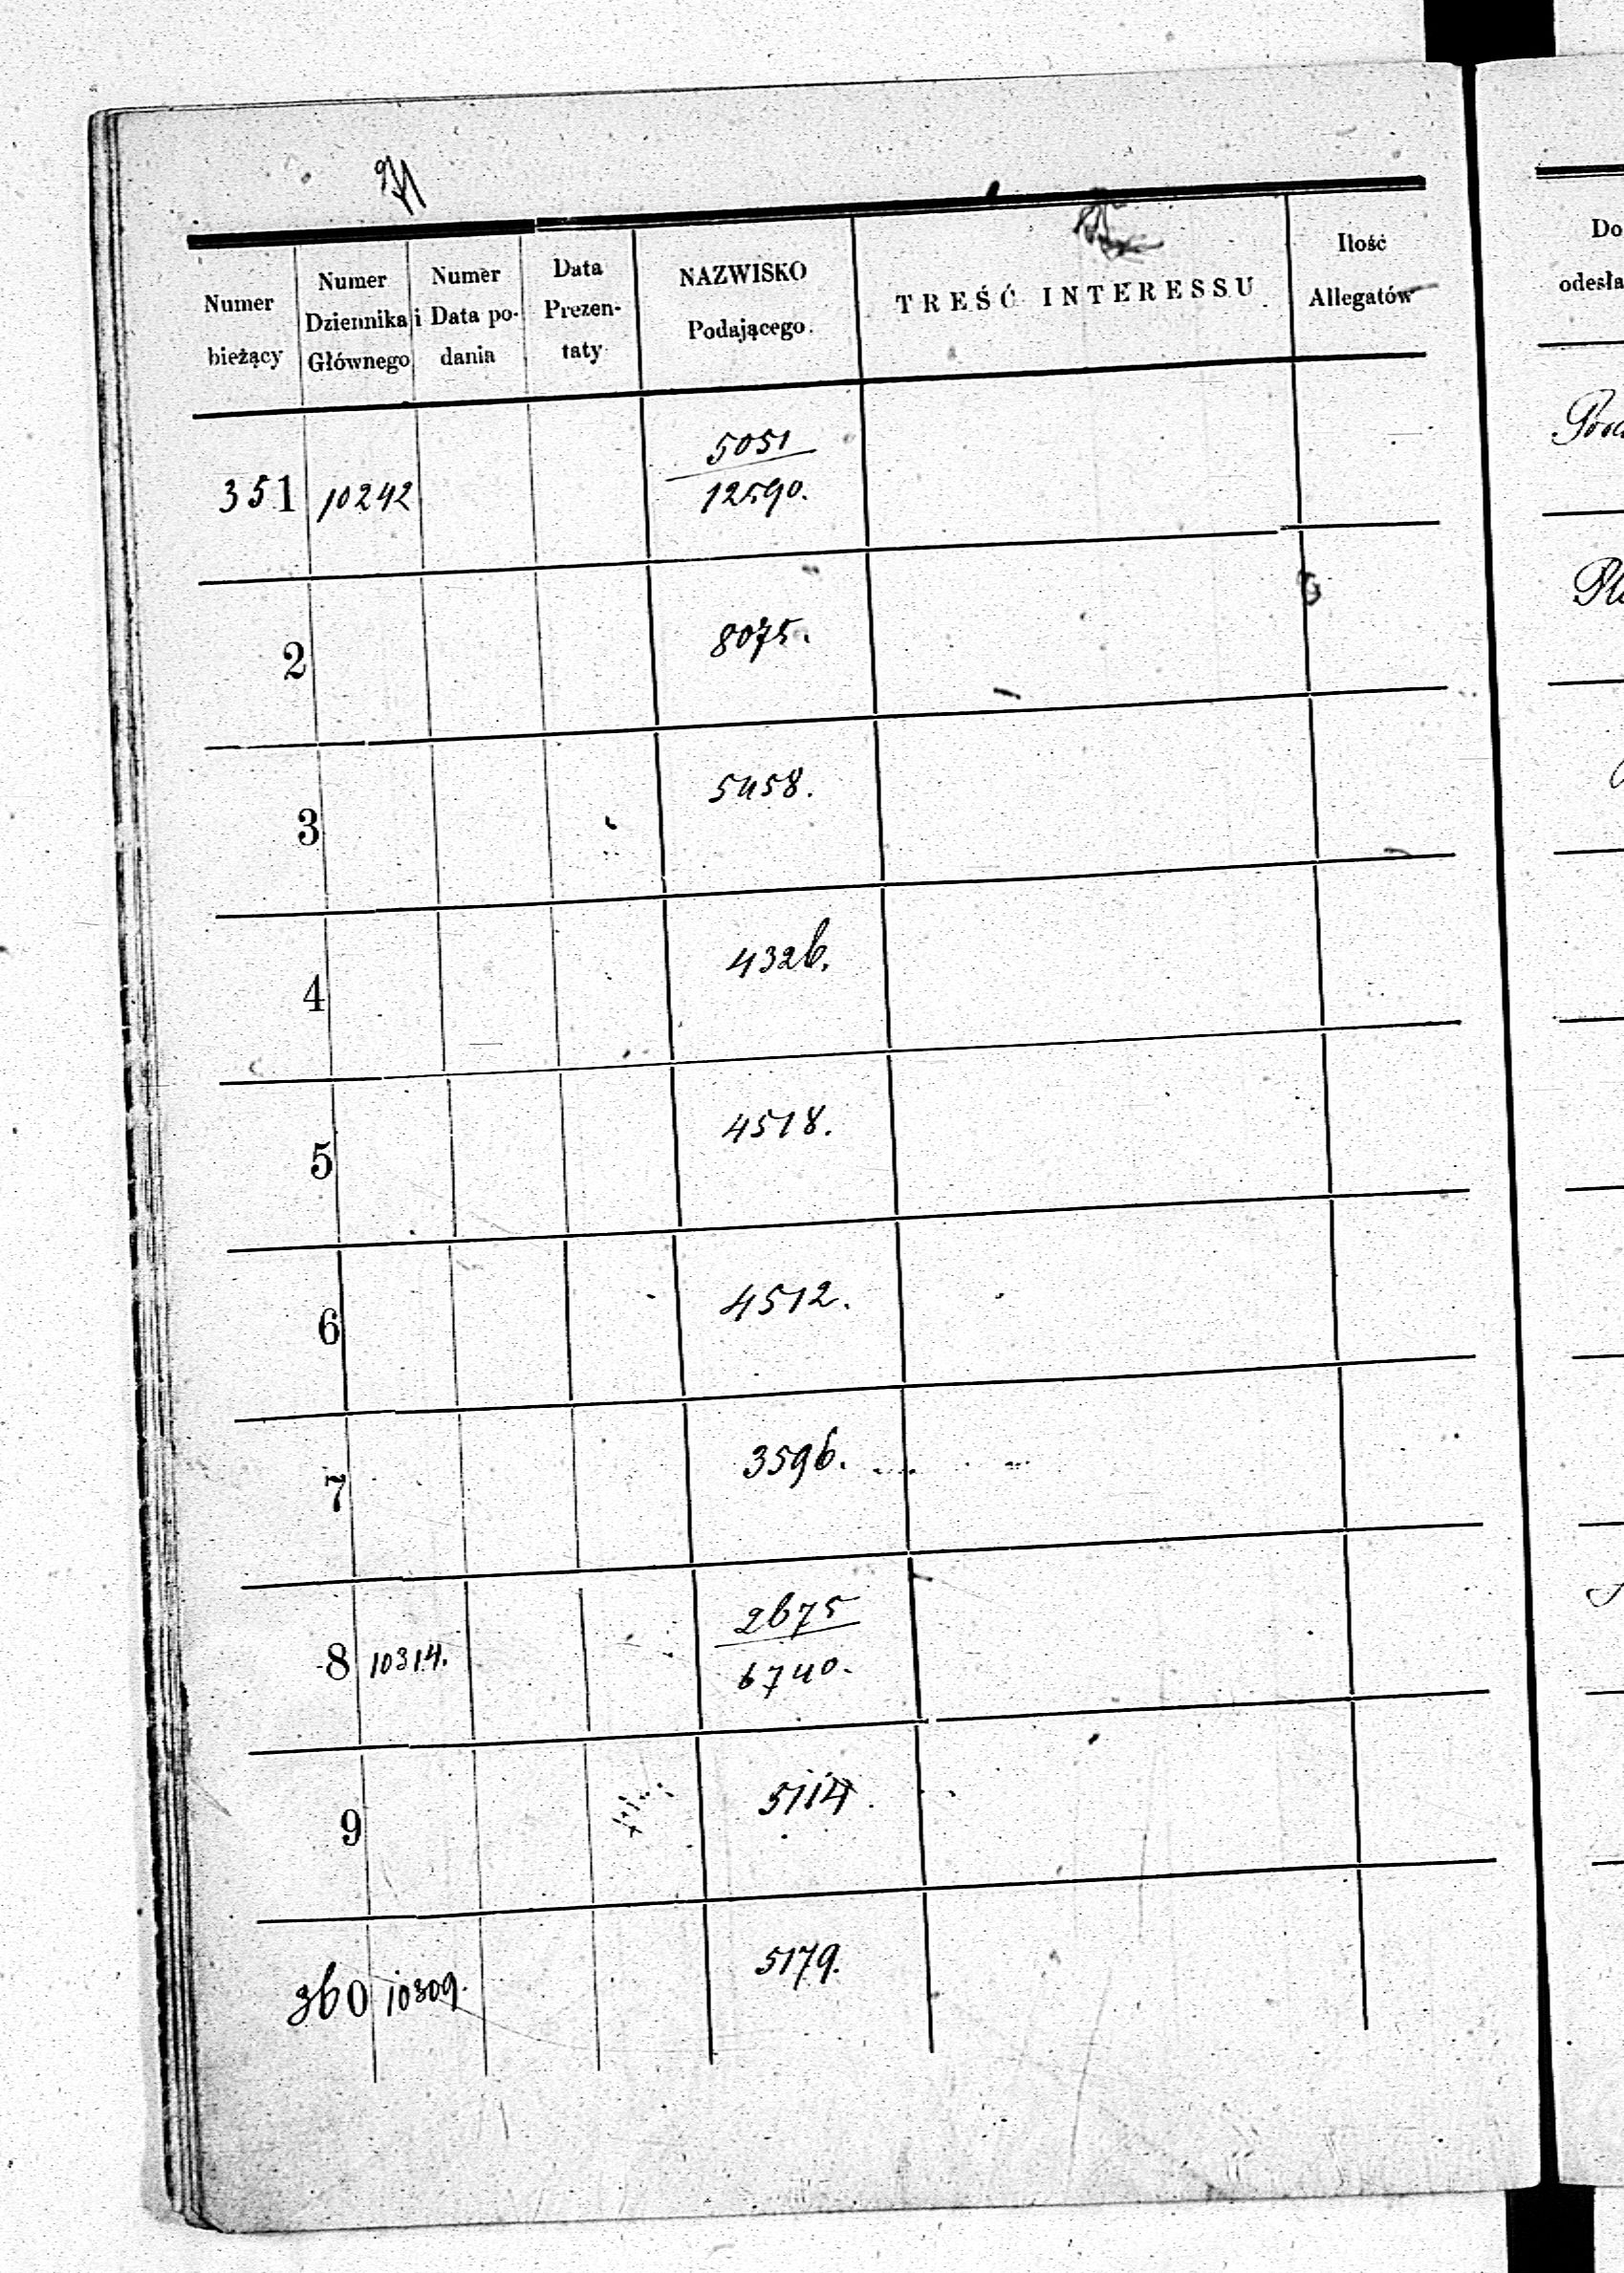 Numer bieżący | Numer Dziennika Głównego | Numer i Data podania | Data Prezentaty | NAZWISKO Podającego. | TREŚĆ INTERESSU | Ilość Allegatów
351 | 10242 | | | 5051 / 12590.
2 | | | | 8075.
3 | | | | 5458.
4 | | | | 4326.
5 | | | | 4518.
6 | | | | 4512.
7 | | | | 3596.
8 | 10314. | | | 2675 / 6740.
9 | | | | 5114.
360 | 10309. | | | 5179.
Do
odesła